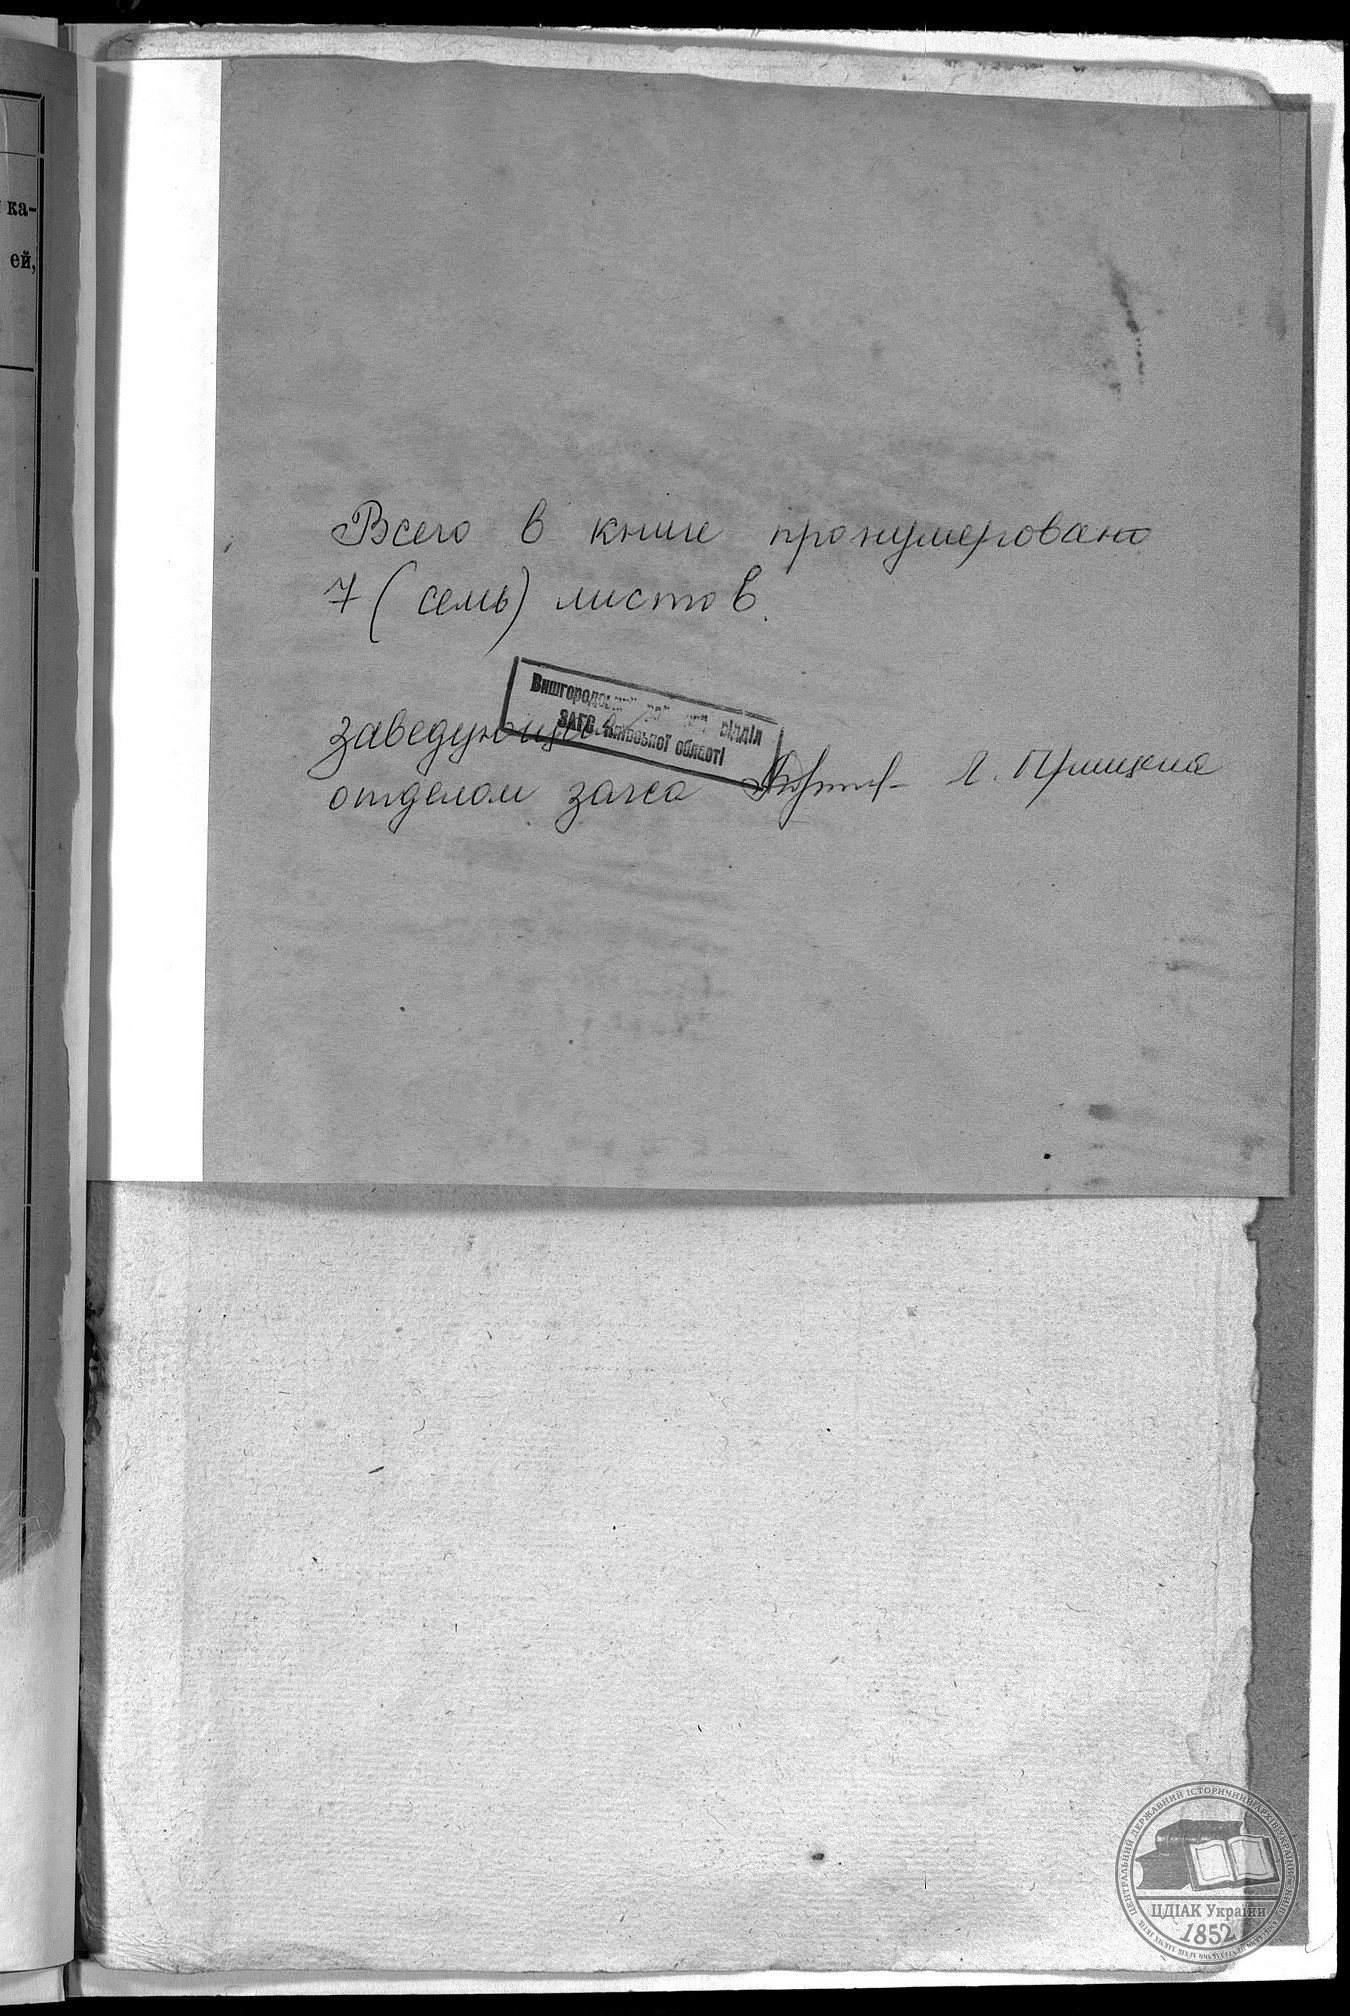 ка-
ей,
Всего в книге пронумеровано
7 (семь) листов.
Вишгородський відділ
ЗАГС Київської області
заведующий
отделом загса Л.
ЦЕНТРАЛЬНИЙ ДЕРЖАВНИЙ ІСТОРИЧНИЙ АРХІВ УКРАЇНИ
ЦДІАК України
1852